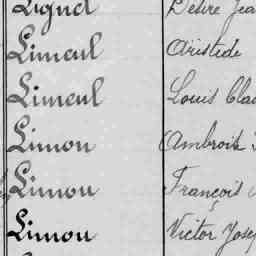 Lignel Désiré
Limeul Aristide
Limeul Louis
Limon Ambroise
Limon François
Limon Victor